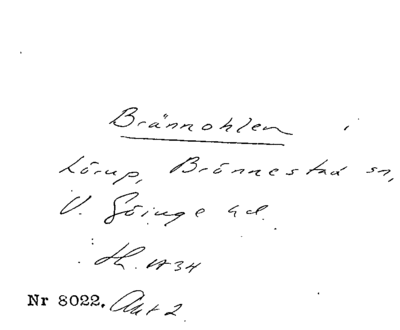 Brännohlen i
Lörup, Brönnestad sn,
V. Göinge hd.
Nr 8022. Akt 2.